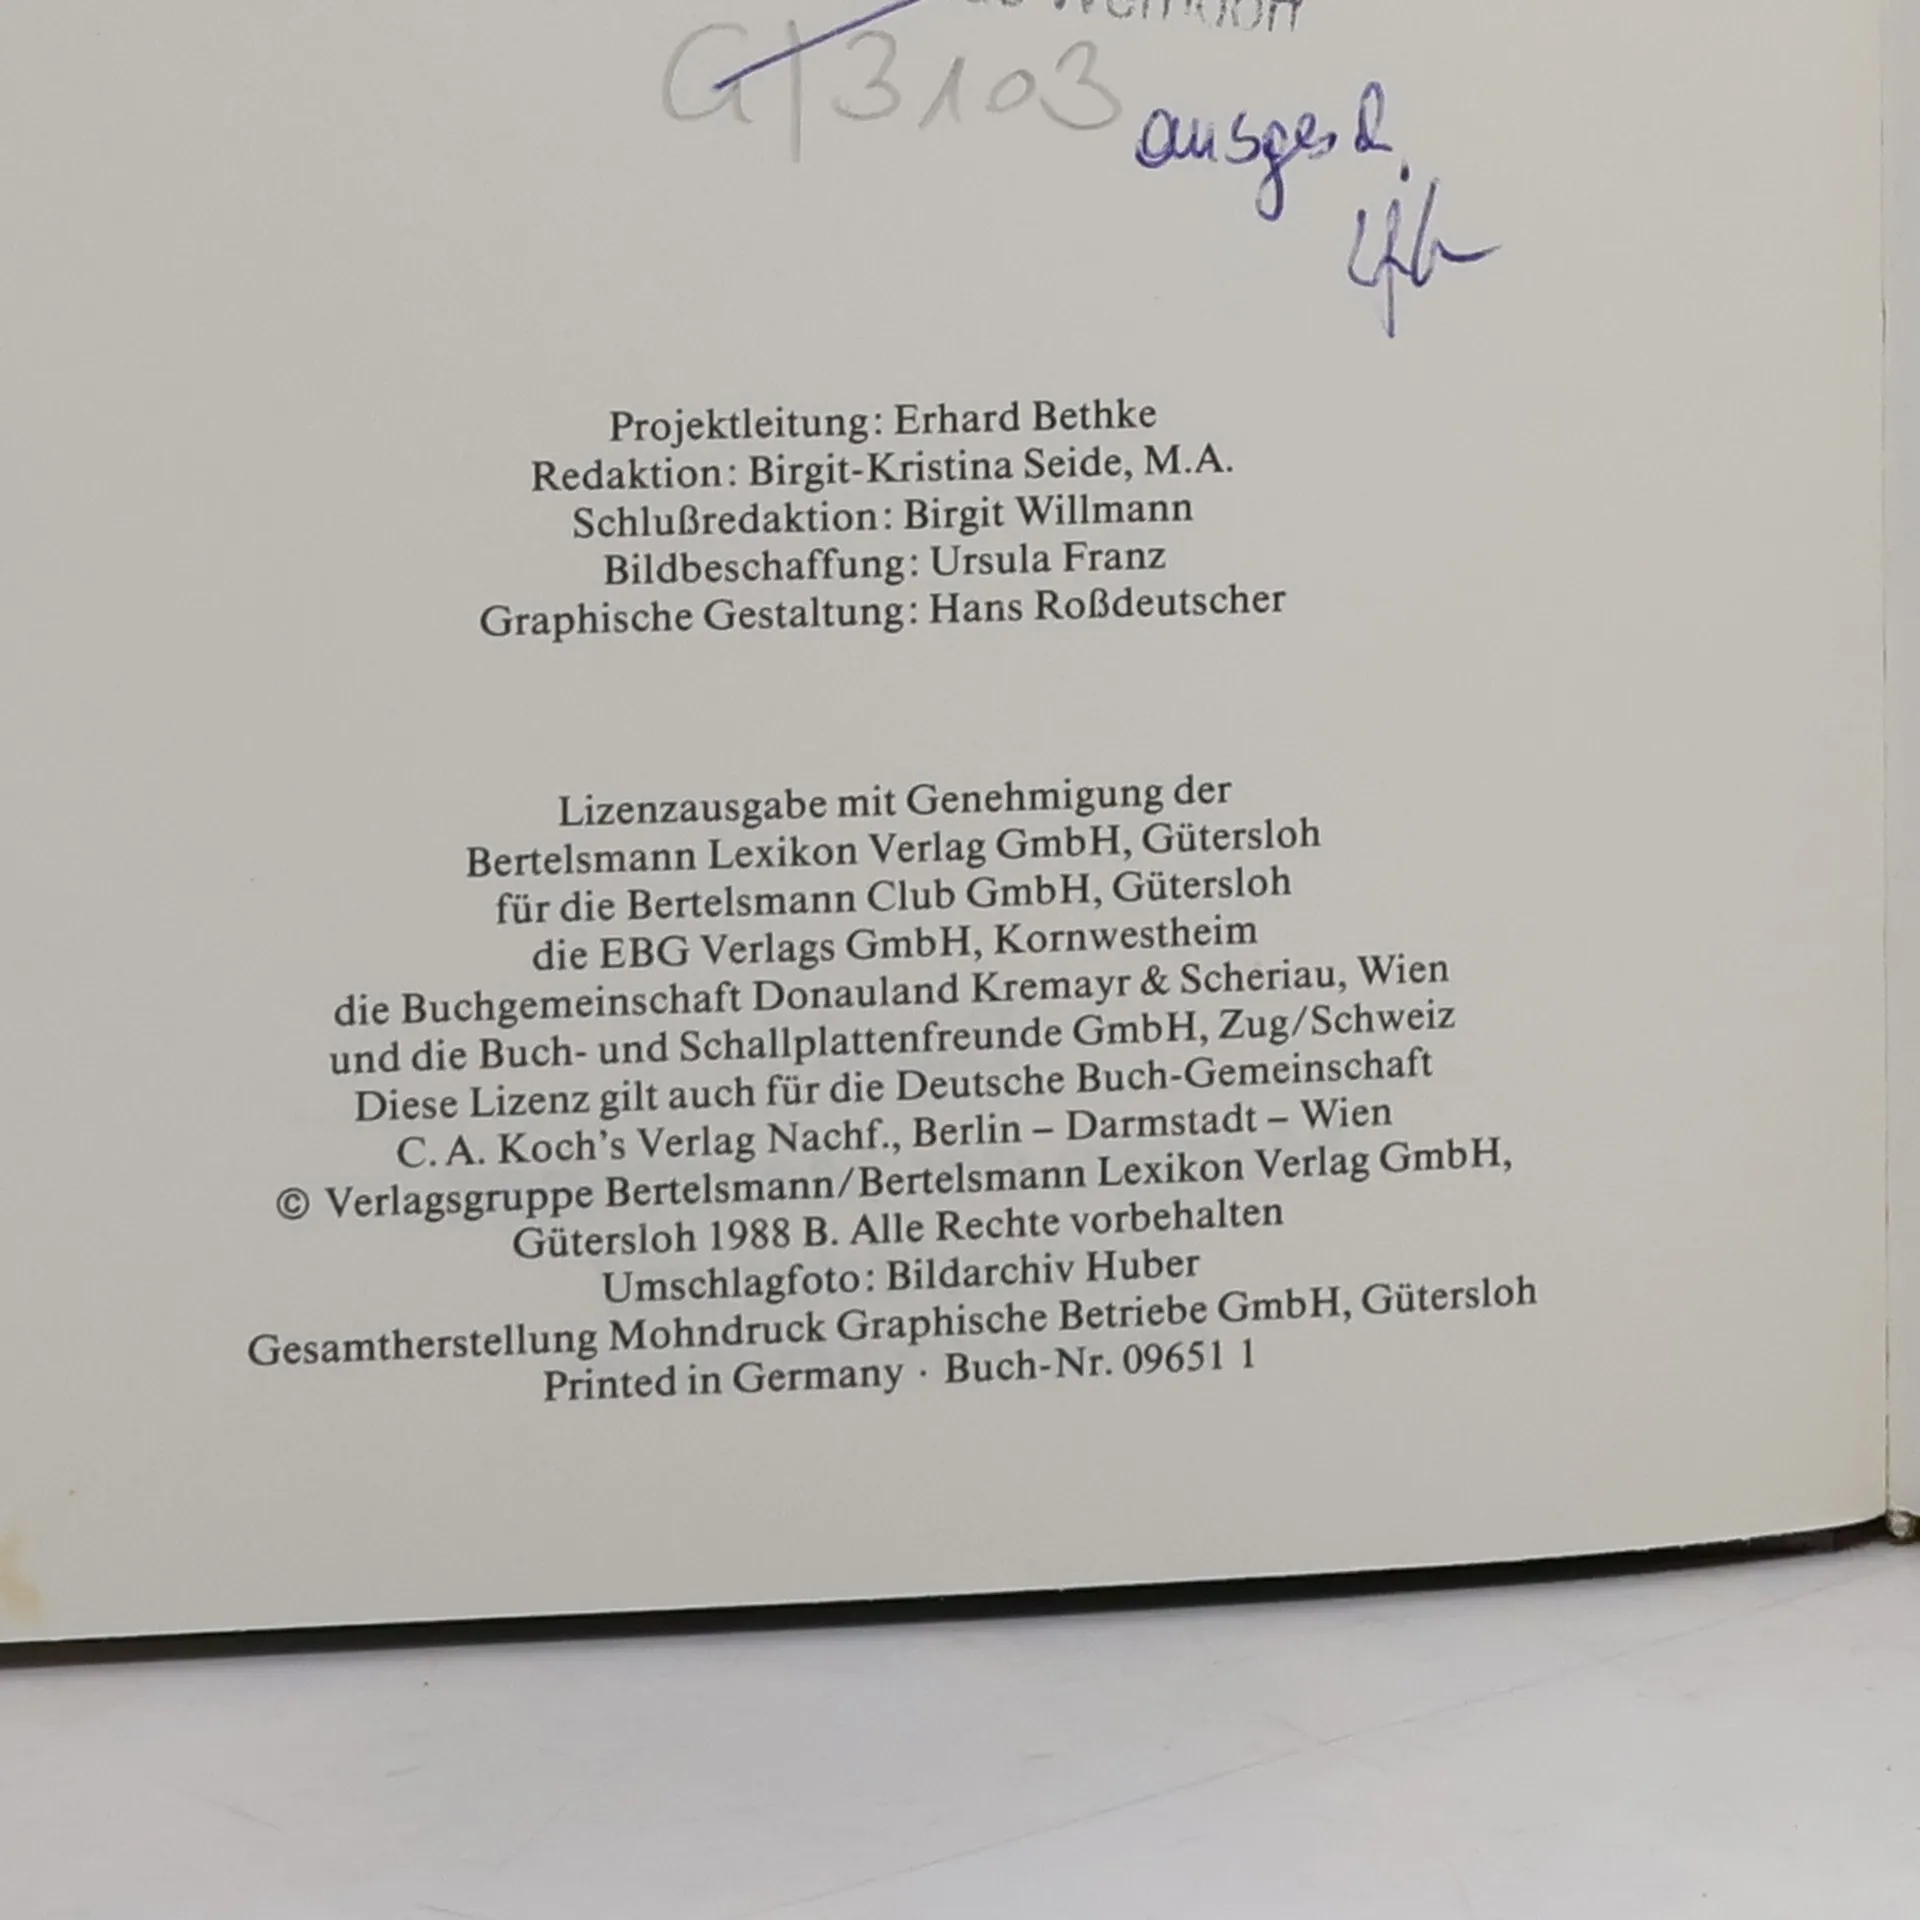 G/3103
ausges
Projektleitung: Erhard Bethke
Redaktion: Birgit-Kristina Seide, M.A.
Schlußredaktion: Birgit Willmann
Bildbeschaffung: Ursula Franz
Graphische Gestaltung: Hans Roßdeutscher
Lizenzausgabe mit Genehmigung der
Bertelsmann Lexikon Verlag GmbH, Gütersloh
für die Bertelsmann Club GmbH, Gütersloh
die EBG Verlags GmbH, Kornwestheim
die Buchgemeinschaft Donauland Kremayr & Scheriau, Wien
und die Buch- und Schallplattenfreunde GmbH, Zug/Schweiz
Diese Lizenz gilt auch für die Deutsche Buch-Gemeinschaft
C. A. Koch's Verlag Nachf., Berlin – Darmstadt – Wien
© Verlagsgruppe Bertelsmann/Bertelsmann Lexikon Verlag GmbH,
Gütersloh 1988 B. Alle Rechte vorbehalten
Umschlagfoto: Bildarchiv Huber
Gesamtherstellung Mohndruck Graphische Betriebe GmbH, Gütersloh
Printed in Germany · Buch-Nr. 09651 1